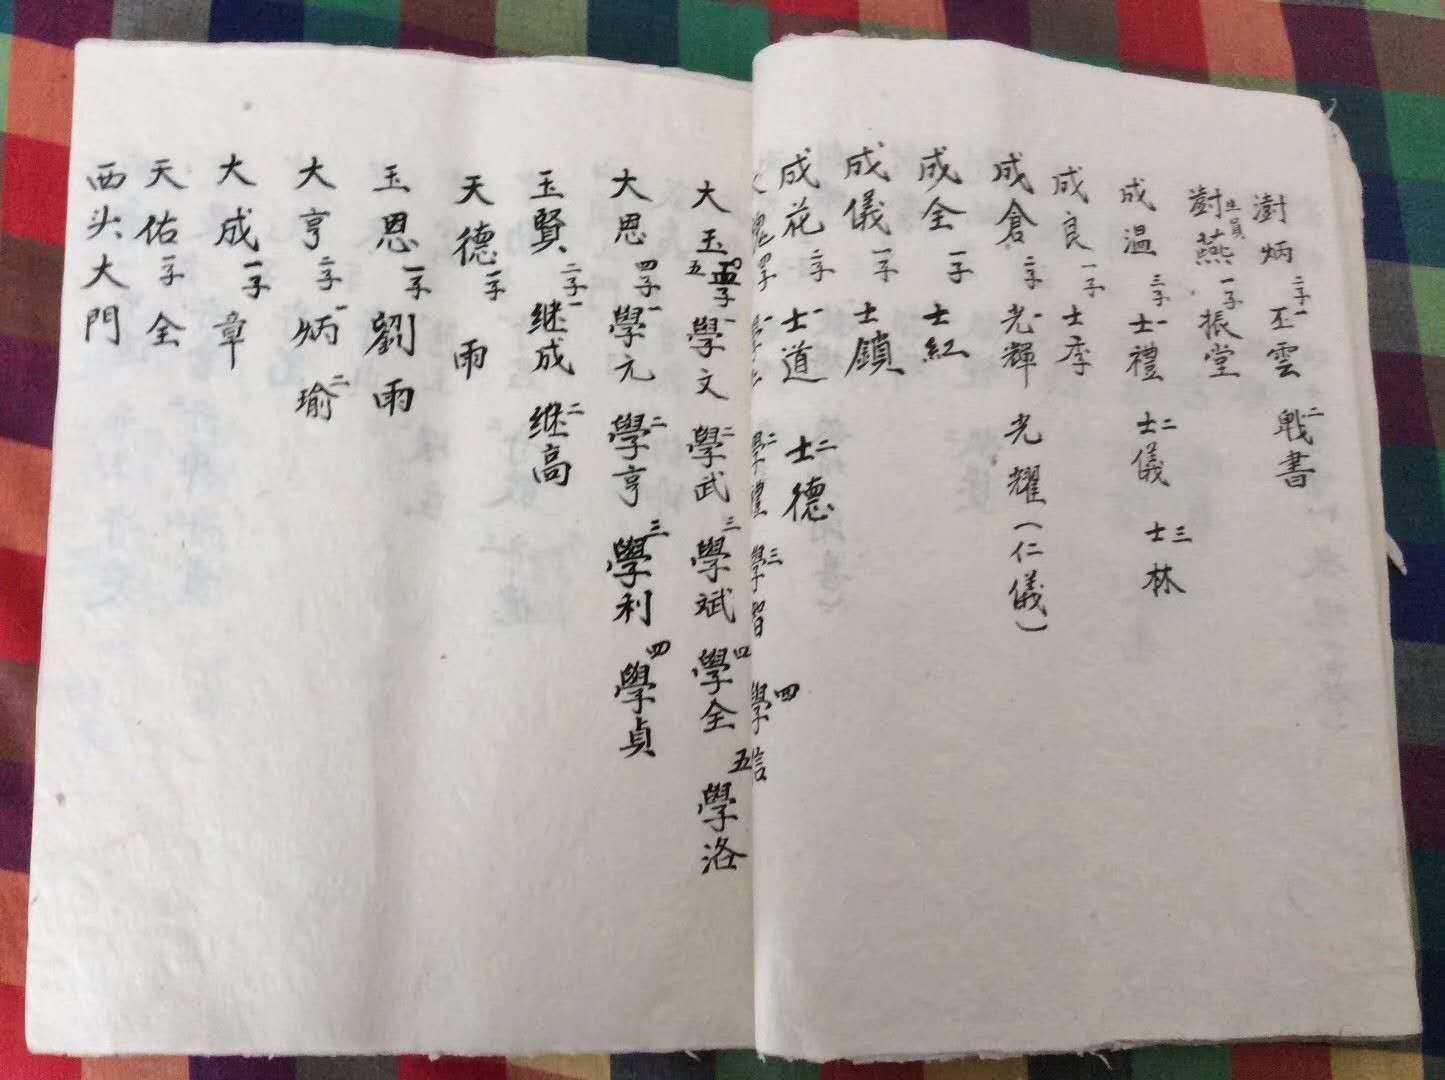 澍炳二子一丕雲二戰書
澍燕生員一子振堂
成温三子一士禮二士儀三士林
成良一子士季
成倉二子一光輝光耀(仁儀)
成全一子士紅
成儀一子士鎖
成花二子一士道二士德
四子二學禮三學習四學信
大玉五子一學文二學武三學斌四學全五學洛
大恩四子一學元二學亨三學利四學貞
玉賢二子一继成二继高
天德一子雨
玉恩一子劉雨
大亨二子一炳二瑜
大成一子章
天佑一子全
西头大門